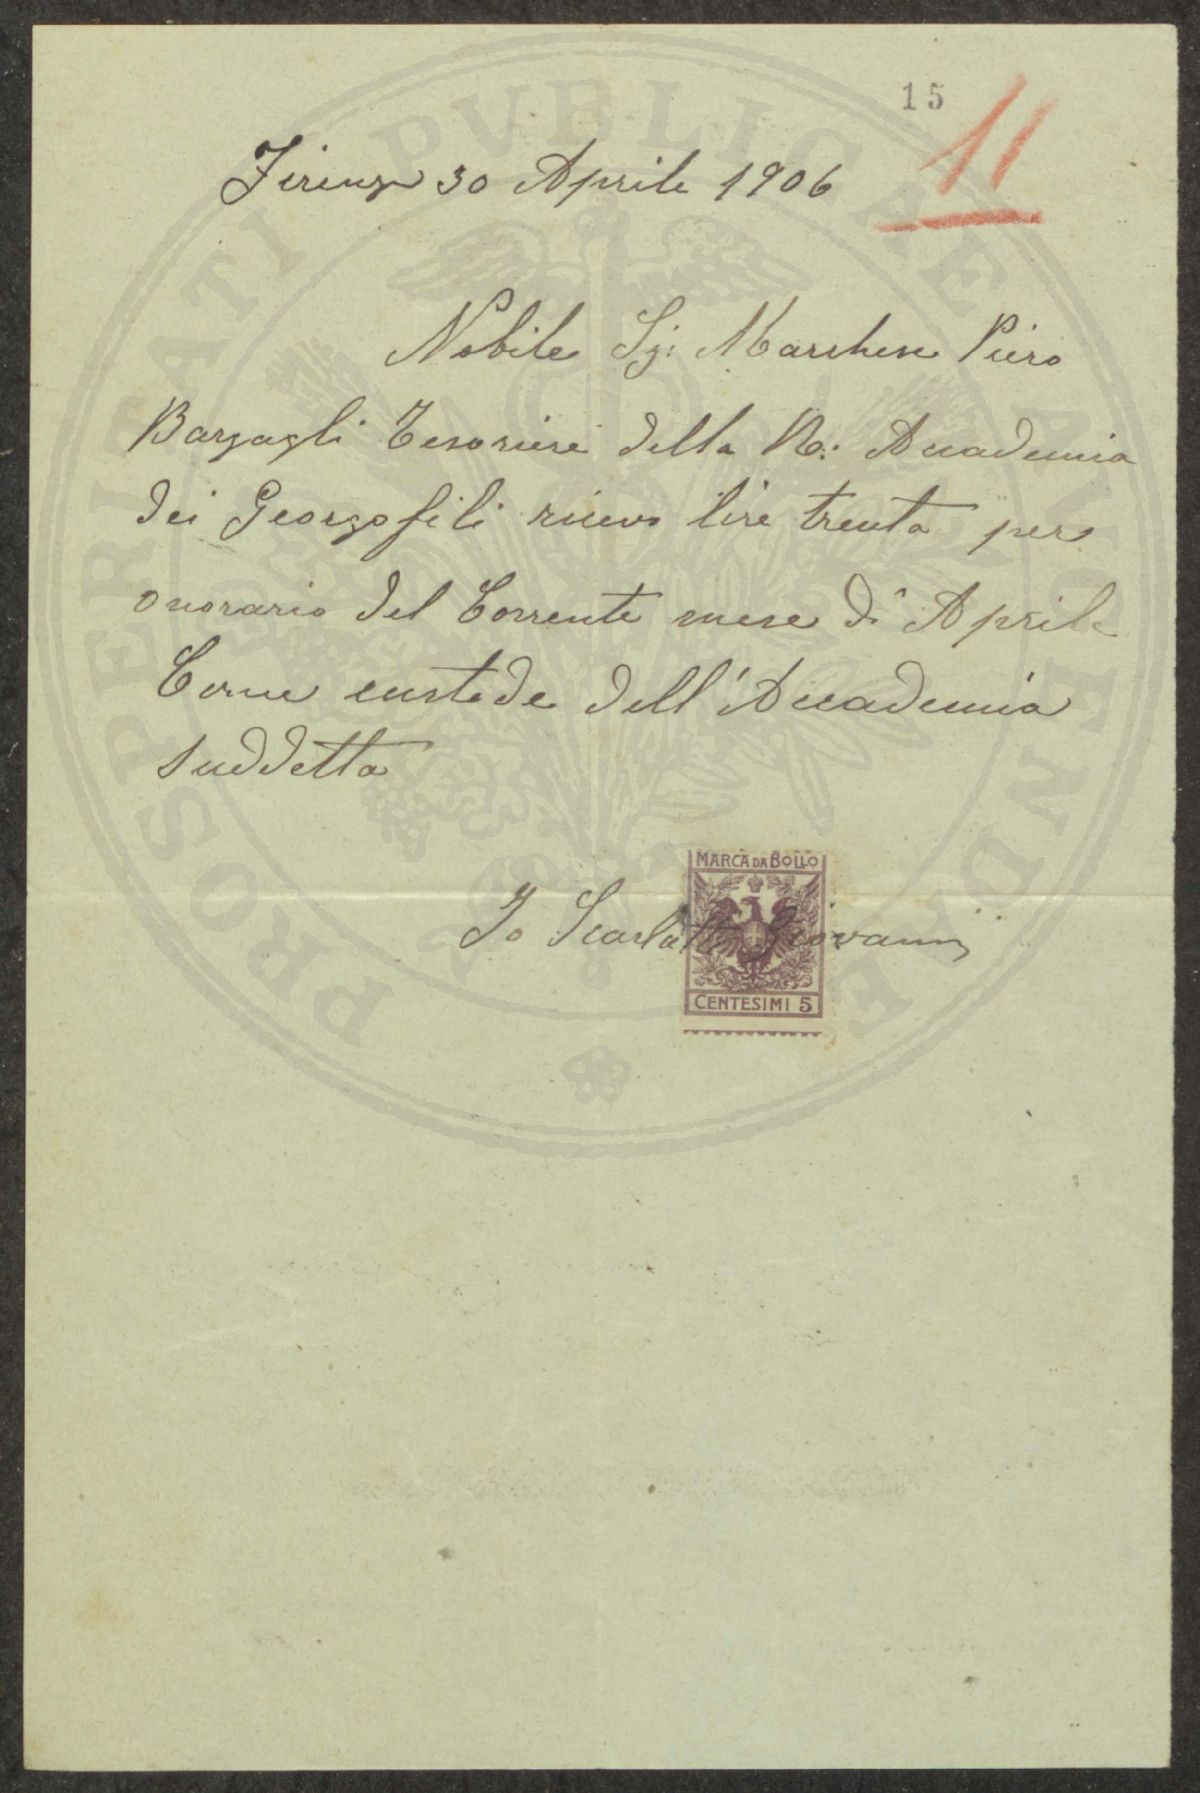 15
11
Firenze 30 Aprile 1906
Nobile Sg: Marchese Piero
Bargagli Tesoriere della R: Accademia
dei Georgofili ricevo lire trenta per
onorario del Corrente mese di Aprile
Come custode dell'Accademia
suddetta
MARCA DA BOLLO
Io Scarlatti Giovanni
CENTESIMI 5
PROSPERITATI PVBLICAE AVGENDAE